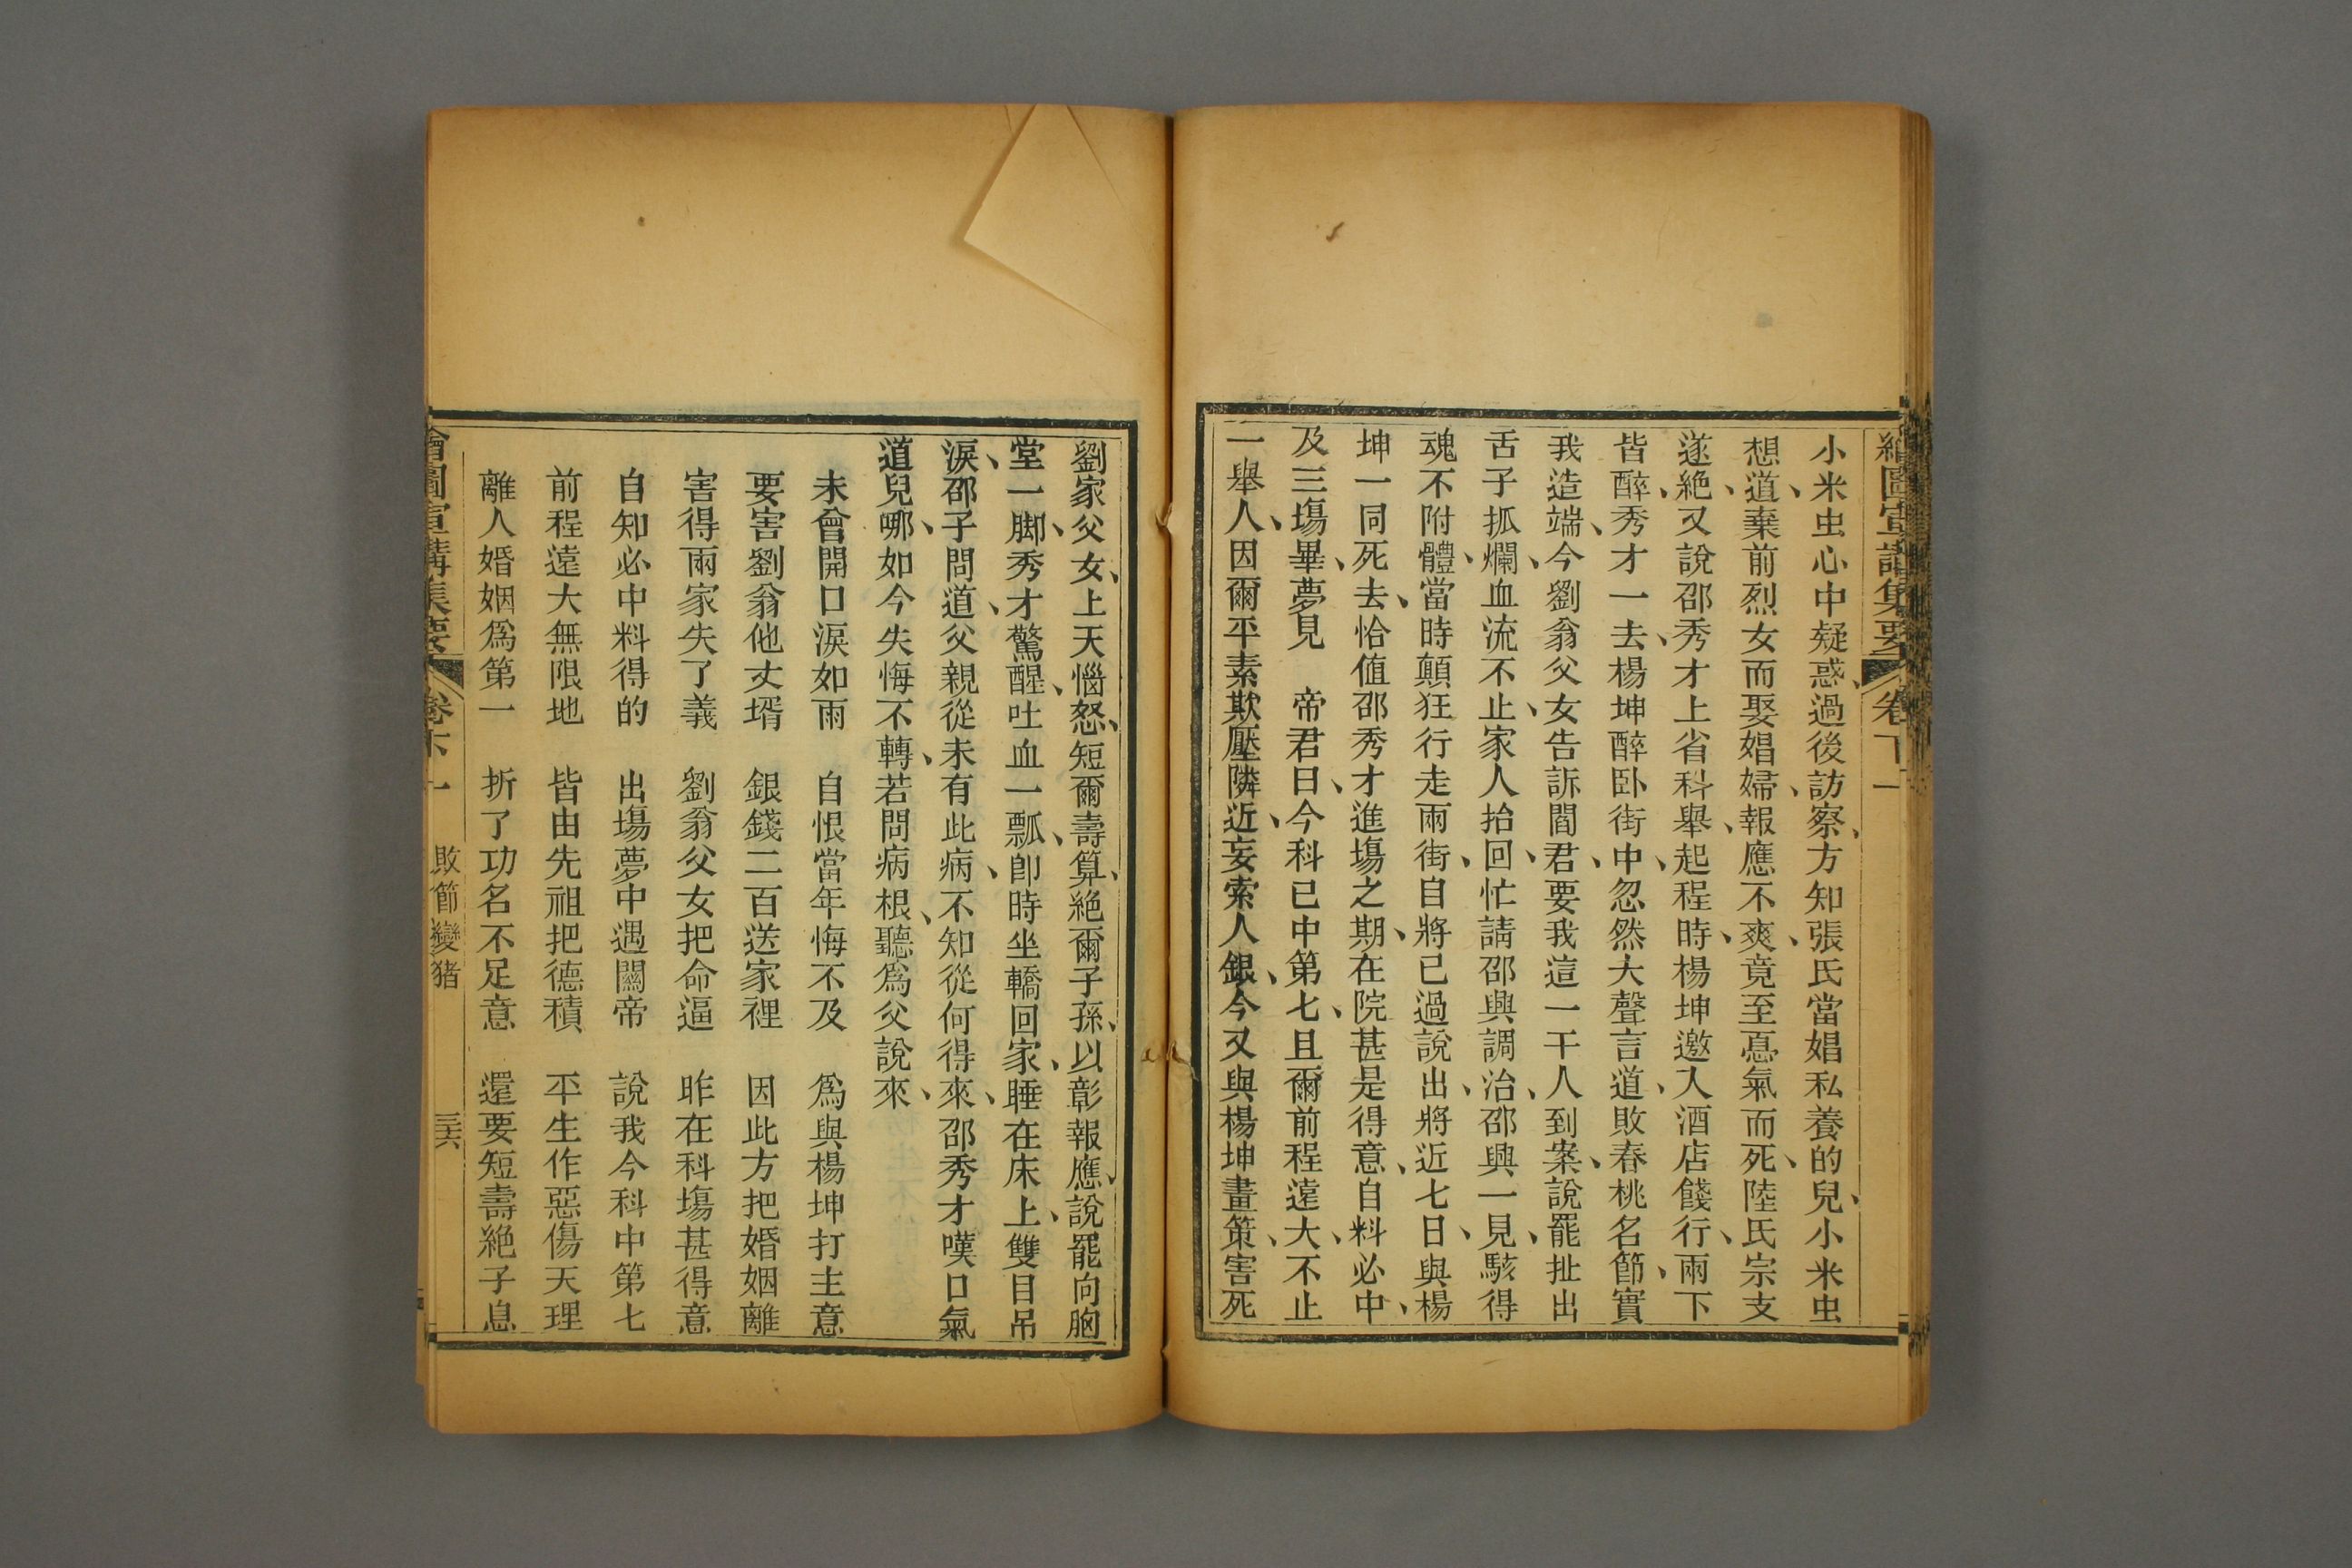 繪圖宣講集要 卷下一
小米虫心中疑惑、過後訪察、方知張氏當娼私養的兒、小米虫
想道、棄前烈女而娶娼婦、報應不爽、竟至慐氣而死、陸氏宗支
遂絕、又說邵秀才上省科舉、起程時、楊坤邀人酒店餞行、兩下
皆醉、秀才一去、楊坤醉卧街中、忽然大聲言道、敗春桃名節、實
我造端、今劉翁父女告訴閻君、要我這一干人到案、說罷扯出
舌子抓爛、血流不止、家人抬回、忙請邵興調治、邵興一見、駭得
魂不附體、當時顛狂行走兩街、自將已過說出、將近七日、與楊
坤一同死去、恰值邵秀才進塲之期、在院甚是得意、自料必中、
及三塲畢、夢見 帝君曰、今科已中第七、且爾前程遠大、不止
一舉人、因爾平素欺壓隣近、妄索人銀、今又與楊坤畫策、害死
劉家父女、上天惱怒、短爾壽算、絕爾子孫、以彰報應、說罷向胸
堂一脚、秀才驚醒、吐血一瓢、卽時坐轎回家、睡在床上、雙目吊
淚、邵子問道、父親從未有此病、不知從何得來、邵秀才嘆口氣
道兒哪、如今失悔不轉、若問病根、聽爲父說來、
未曾開口淚如雨 自恨當年悔不及 爲與楊坤打主意
要害劉翁他丈壻 銀錢二百送家裡 因此方把婚姻離
害得兩家失了義 劉翁父女把命逼 昨在科塲甚得意
自知必中料得的 出塲夢中遇關帝 說我今科中第七
前程遠大無限地 皆由先祖把德積 平生作惡傷天理
離人婚姻爲第一 折了功名不足意 還要短壽絕子息
繪圖宣講集要 卷下一 敗節變猪 三六